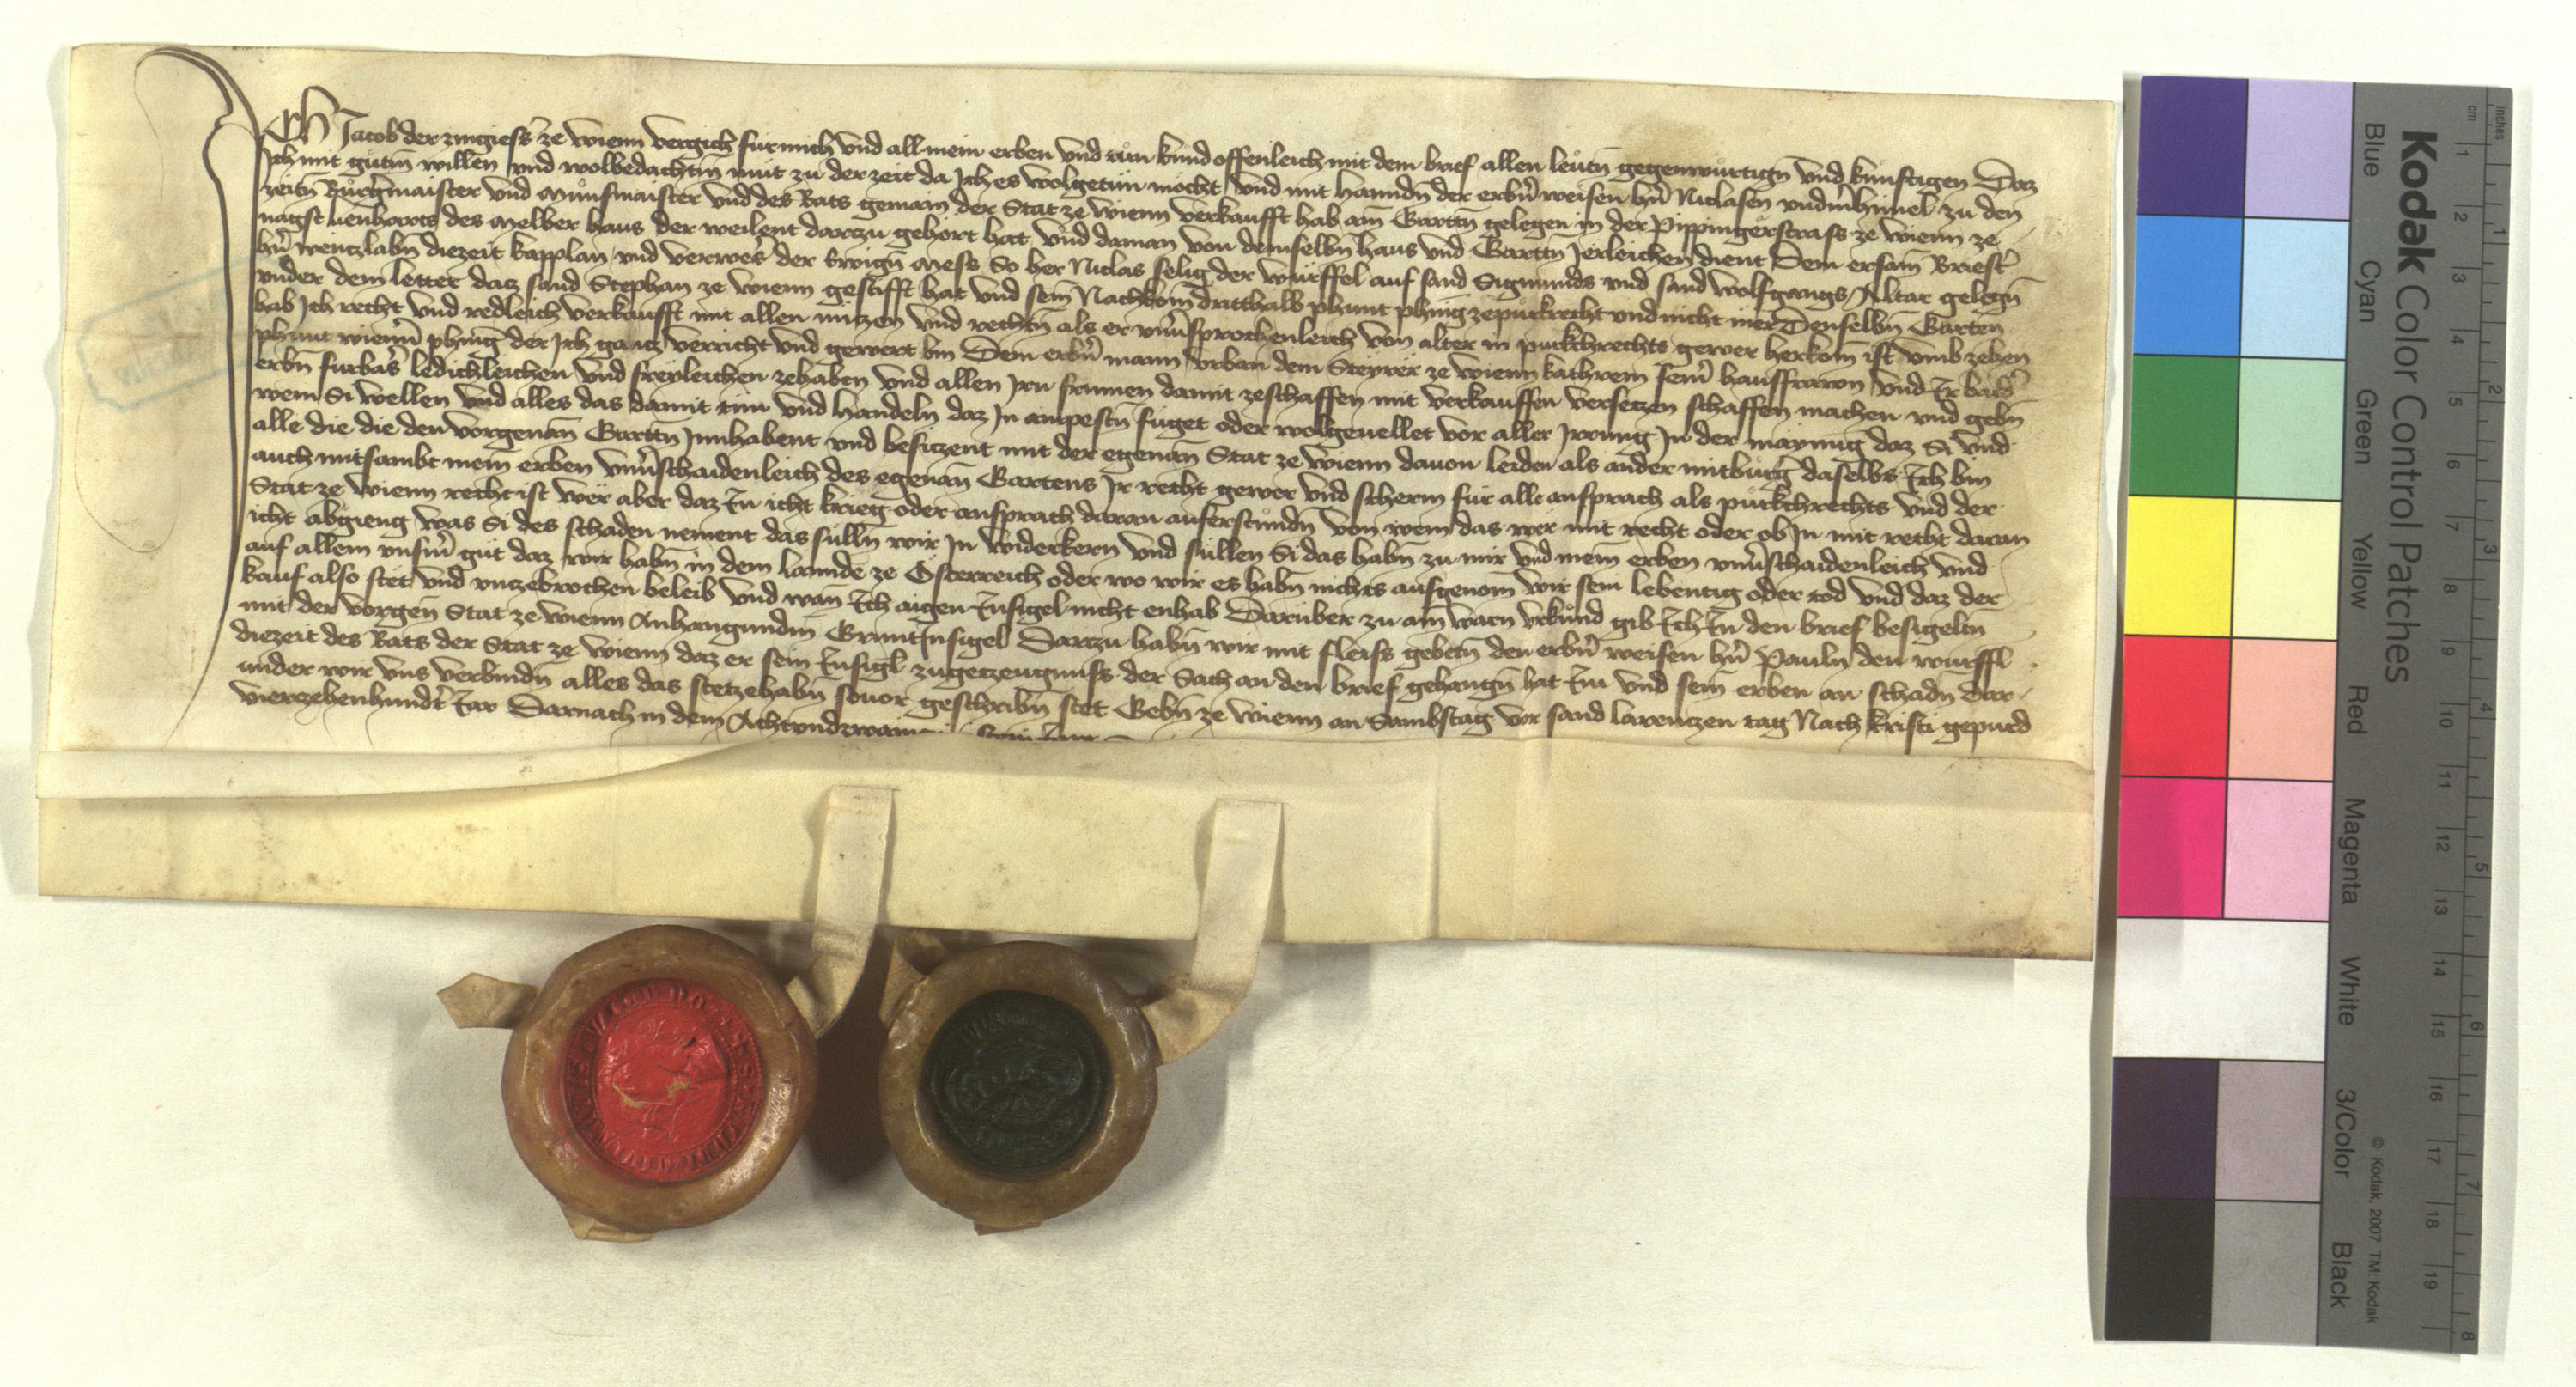 Ich Jacob der zingiesser ze wienn vergich fur mich vnd all mein erben vnd tun kund offenleich mit dem brief allen leutn gegenwurtign vnd kunftigen Daz
Ich mit gutm willen vnd wolbedachtm mut zu der zeit da Ich es wolgetun mocht vnd mit hanndn der erbn weisen hn Niclasen vndermhimel zu den
zeitn Burgermaister vnd Munsmaister vnd des Rats gemain der Stat ze wienn verkaufft hab ain Garttn gelegen in der Pippingerstrass ze wienn ze
nagst des Melber haus der weilent darczu gehort hat vnd daman von demselbn haus vnd Garttn Jerleichen dient Dem ersam Briester
hn wenczlabn diezeit kapplan vnd verweser der Ewign Mess So her Niclas selig der wurffel auf sand Sigmunds vnd sand wolfgangs Altar gelegn
vnder dem letter daz sand Stephan ze wienn gestifft hat vnd sein Nachkom dritthalb phunt phing ze purkrecht vnd nicht mer Denselbn Garten
hab Ich recht vnd redleich verkaufft mit allen nuczen vnd rechtn als er vnuersprochenleich von alter in purkchrechts gewer herkom ist vmb zehen
phunt wienner phing der Ich gancz verricht vnd gewert bin Dem erbn mann vrban dem Steyrer ze wienn kathrein seinr hausffrawn vnd Ir baider
erbn furbas ledichleichen vnd freyleichen zehaben vnd allen Irn frumen damit zeschaffen mit verkauffen verseczen schaffen machen vnd gebn
wem Si wellen vnd alles das damit tun vnd handeln daz In ampestn fuget oder wolgeuellet vor aller Irrung In der maynung daz Si vnd
alle die die den vorgenan Garttn Innhabent vnd besiczent mit der egenan Stat ze wienn dauon leiden als ander mitburger daselbs Ich bin
auch mitsambt mein erben vnuerschaidenleich des egenan Gartens Ir recht gewer vnd scherm fur alle ansprach als purkchrechts vnd der
Stat ze wienn recht ist wer aber daz In icht krieg oder ansprach daran auferstundn von wem das wer mit recht oder ob In mit recht daran
icht abgieng was Si des schaden nement das sulln wir In widerkern vnd sullen Si das habn zu mir vnd mein erben vnuerschaidenleich vnd
auf allem vnserm gut daz wir habn in dem lannde ze Osterreich oder wo wir es habn nichts ausgenom wir sein lebentig oder tod vnd daz der
kauf also stet vnd vnczebrochen beleib vnd wan Ich aigen Insigel nicht enhab Daruber zu aim warn vrkund gib Ich In den brief besigeltn
mit der vorgen Stat ze wienn Anhangundm GruntInsigel Darczu habn wir mit fleiss gebetn den erbn weisen hn Pauln den wurffl
diezeit des Rats der Stat ze wienn daz er sein Insigl zugeczeugnuss der Sach an den brief gehangn hat Im vnd sein erben an schadn Dar
under wir vns verbindn alles das stetzehabn souor geschribn stet Gebn ze wienn an Sambstag vor sand larenczen tag Nach kristi gepurd
vierczehenhundert Iar Darnach in dem Achtundzwain
Kodak Color Control Patches
Blue Cyan Green Yellow Red Magenta White 3/Color Black
© Kodak, 2007 TM: Kodak
cm 1 2 3 4 5 6 7 8 9 10 11 12 13 14 15 16 17 18 19
inches 1 2 3 4 5 6 7 8